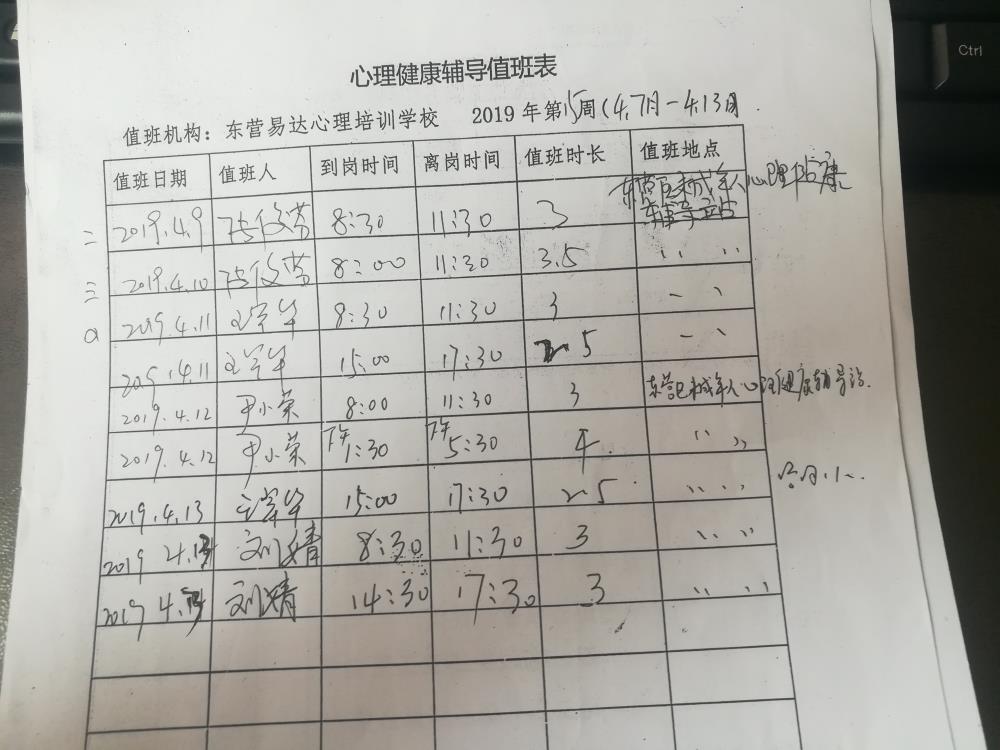 Ctrl
心理健康辅导值班表
值班机构：东营易达心理培训学校 2019年第15周（4.7日－4.13日
值班日期 值班人 到岗时间 离岗时间 值班时长 值班地点
二 2019.4.9 8:30 11:30 3 心理健康
辅导站
三 2019.4.10 8:00 11:30 3.5 〃
2019.4.11 王学华 8:30 11:30 3
2019.4.11 王学华 15:00 17:30 2.5
2019.4.12 尹小荣 8:00 11:30 3 东营区未成年人心理健康辅导站
2019.4.12 尹小荣 下午1:30 下午5:30 4 〃
2019.4.13 王学华 15:00 17:30 2.5 〃
2019 4.13 刘婧 8:30 11:30 3 〃
2019 4.13 刘婧 14:30 17:30 3 〃